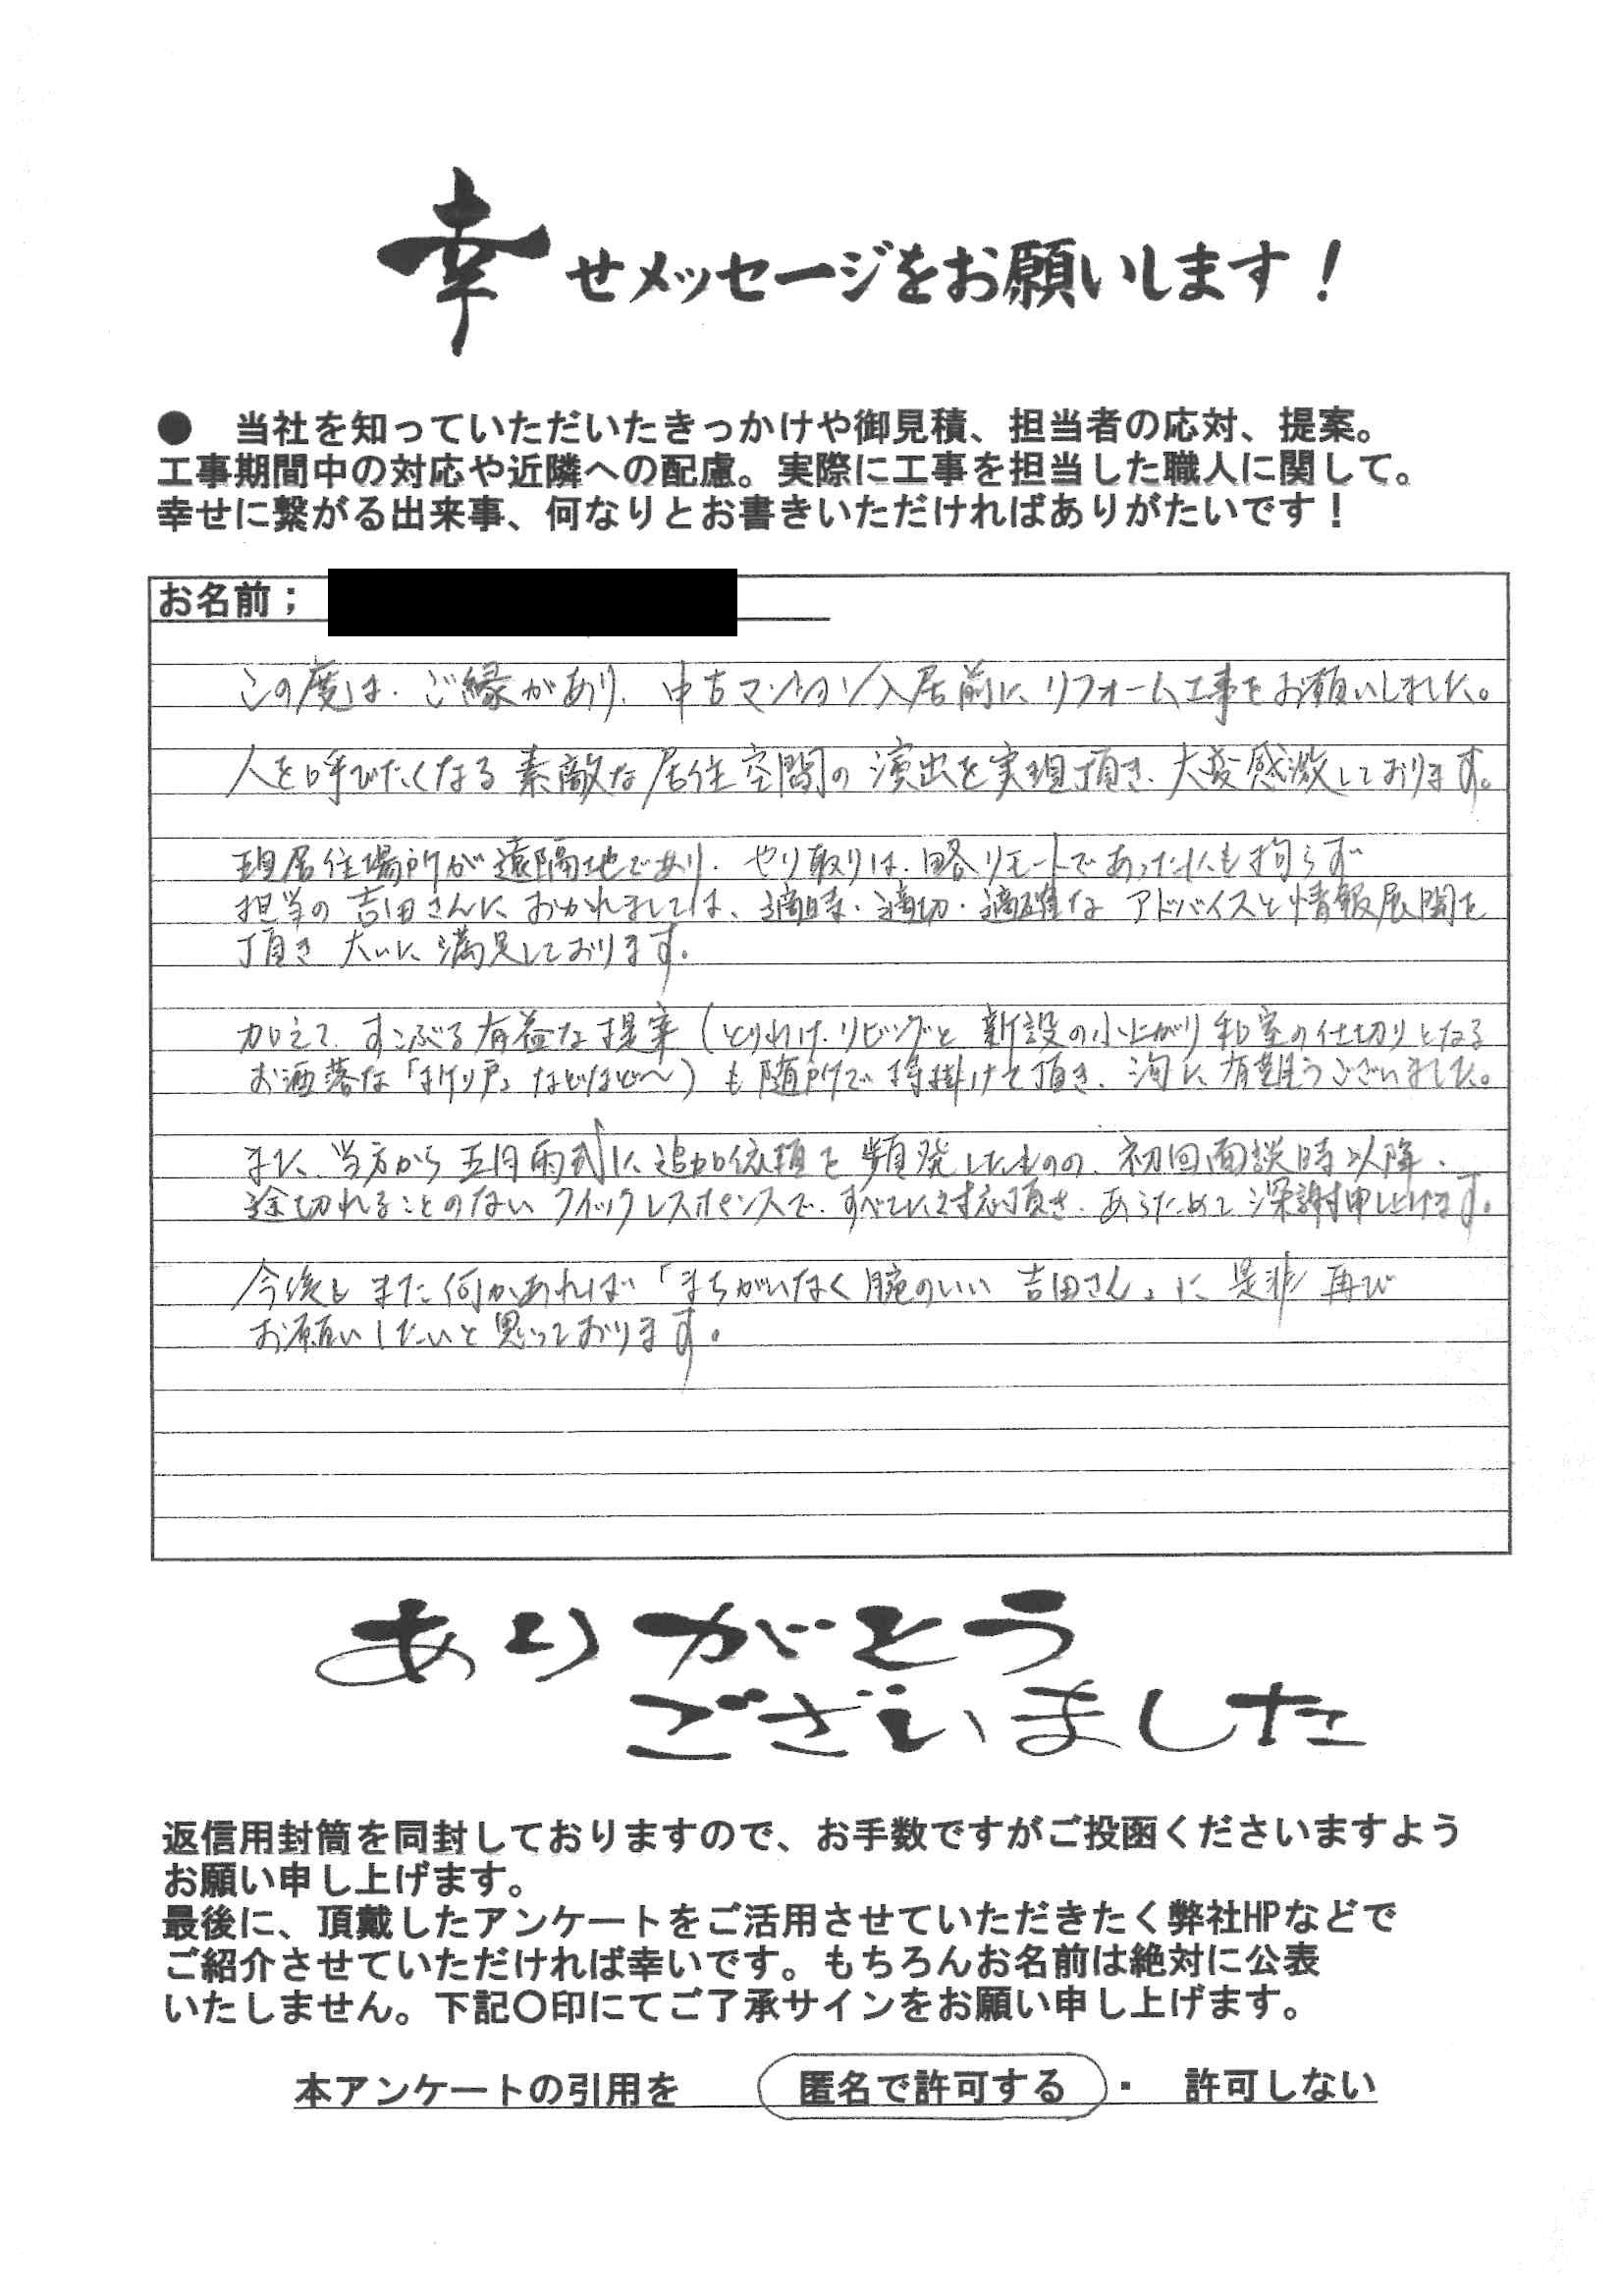 幸せメッセージをお願いします！
● 当社を知っていただいたきっかけや御見積、担当者の応対、提案。
工事期間中の対応や近隣への配慮。実際に工事を担当した職人に関して。
幸せに繋がる出来事、何なりとお書きいただければありがたいです！
お名前；
この度は、ご縁があり、中古マンション入居前にリフォーム工事をお願いしました。
人を呼びたくなる素敵な居住空間の演出を実現頂き、大変感激しております。
現居住場所が遠隔地であり、やり取りは、略リモートであったにも拘らず
担当の吉田さんにおかれましては、適時・適切・適確なアドバイスと情報展開を
頂き大いに満足しております。
加えて、すこぶる有益な提案(とりわけ、リビングと新設の小上がり和室の仕切りとなる
お洒落な「 などなど～)も随所で 頂き、洵に有難うございました。
また、当方から五月雨式に追加依頼を頻発したものの、初回面談時以降、
途切れることのないクイックレスポンスで、すべてに対応頂き、あらためて深謝申し上げます。
今後もまた何かあれば「まちがいなく腕のいい吉田さん」に是非再び
お願いしたいと思っております。
ありがとう
ございました
返信用封筒を同封しておりますので、お手数ですがご投函くださいますよう
お願い申し上げます。
最後に、頂戴したアンケートをご活用させていただきたく弊社HPなどで
ご紹介させていただければ幸いです。もちろんお名前は絶対に公表
いたしません。下記〇印にてご了承サインをお願い申し上げます。
本アンケートの引用を 匿名で許可する ・ 許可しない